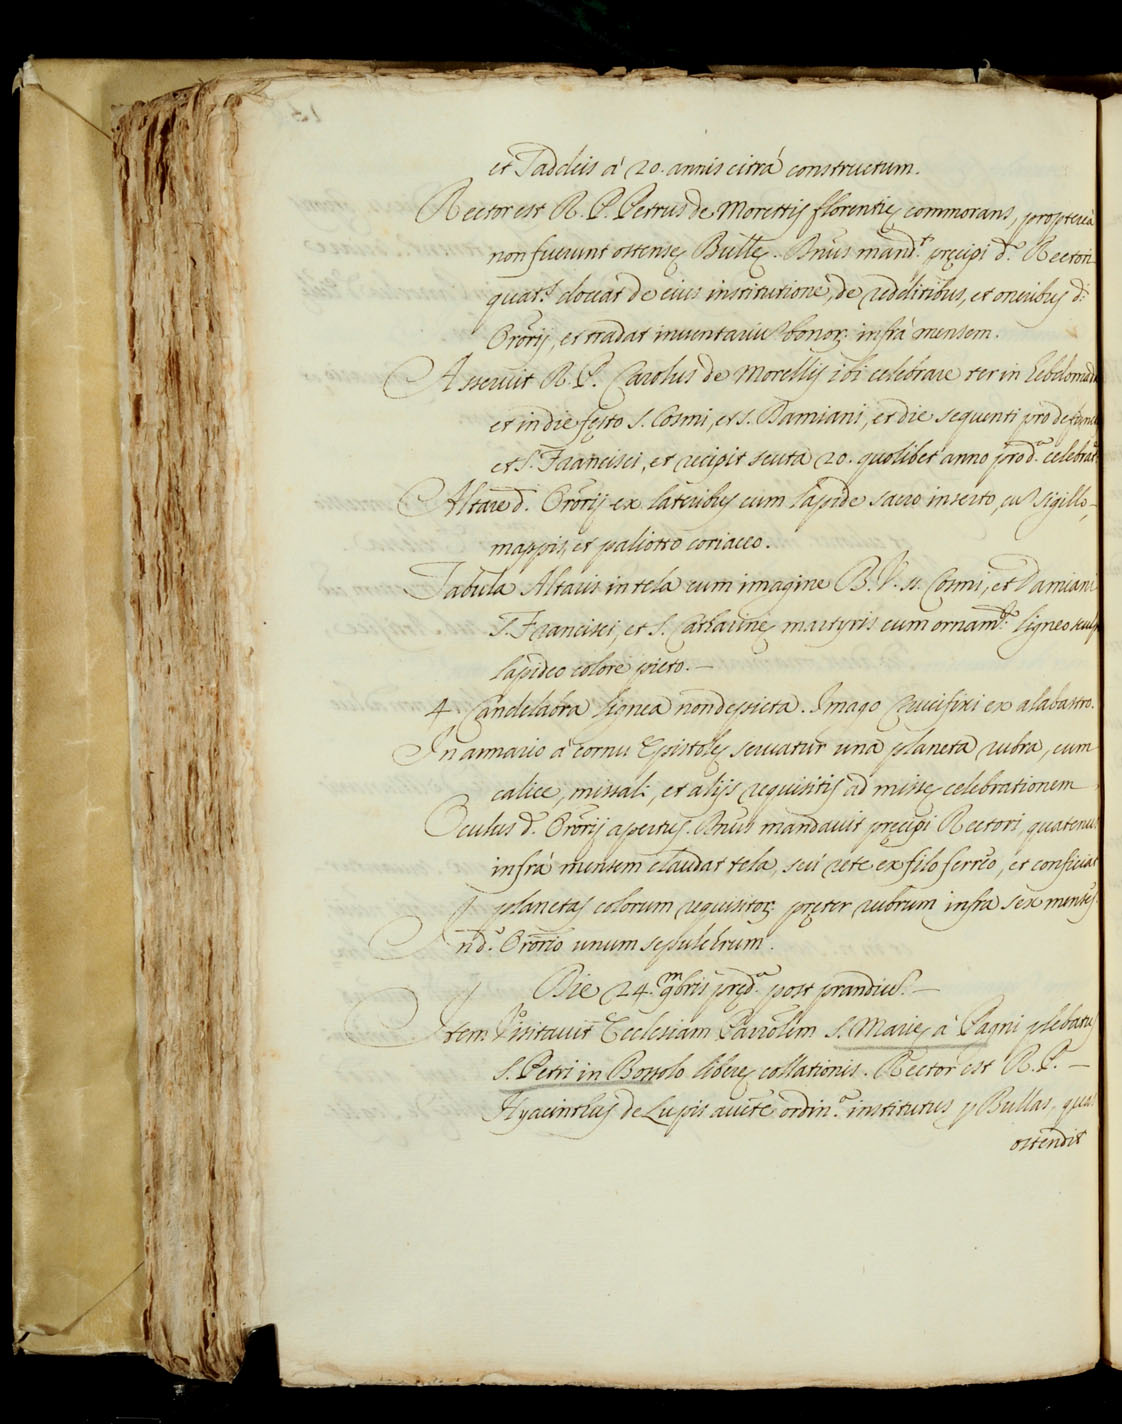 et Taddeis à 20. annis citrà constructum.
Rector est R. P. Petrus de Morettis florentię commorans, proptereà
non fuerunt ostensę Bullę. Bnus mand.t pręcipi d.o Rectori
quat.s doceat de eius institutione, de redditibus, et oneribus d.i
Orõrij, et tradat inventariũ bonor. infrà mensem.
Asseruit R. P. Carolus de Morellis ibi celebrare ter in hebdomada
et in die festo S. Cosmi, et S. Damiani, et die sequenti pro
et S. Francisci, et recipit scuta 20. quolibet anno pro d.a
Altare d. Orõrij ex lateribus cum lapide sacro inserto, cũ sigillo,
mappis, et paliotto coriaceo.
Tabula Altaris in tela cum imagine B. V. ss. Cosmi, et Damiani
S. Francisci, et S. Catharinę martyris cum ornam.to ligneo
lapideo colore picto. —
4. Candelabra lignea non depicta. Imago Crucifixi ex alabastro.
In armario à cornu Epistolę servatur una planeta rubra, cum
calice, missali, et alijs requisitis ad missę celebrationem
Oculus d. Orõrij apertus. Bnus mandavit pręcipi Rectori, quatenus
infrà mensem claudat tela, seù rete ex filo ferreo, et conficiat
planetas colorum requisitor. pręter rubrum infra sex menses.
In d.o Orõrio unum sepulchrum.
Die 24. 9bris pręd.a post prandiũ. —
Item Visitavit Ecclesiam Parrõlem S. Marię à Pagni plebatus
S. Petri in Bossolo liberę collationis. Rector est R. P. —
Hyacinthus de Lupis aucte ordin.a institutus p Bullas, quas
ostendit